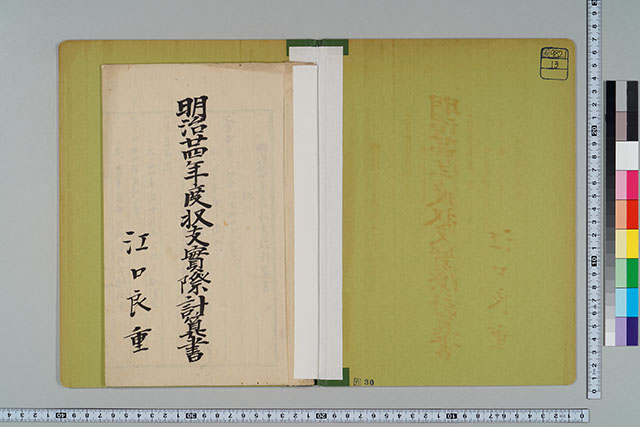 明治廿四年度収支實際計算書
江口良重
13
30